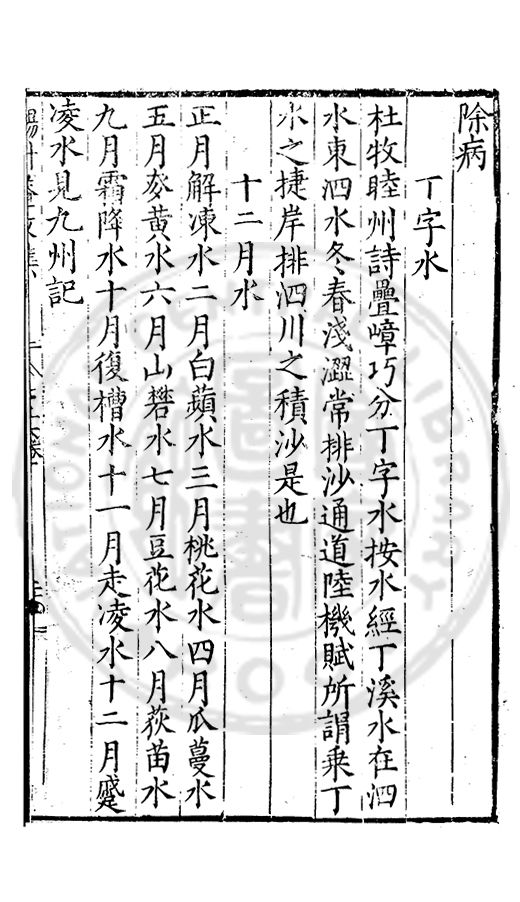 除病
丁字水
杜牧睦州詩疊嶂巧分丁字水按水經丁溪水在泗
水東泗水冬春淺澀常排沙通道陸機賦所謂乗丁
水之捷岸排泗川之積沙是也
十二月水
正月解凍水二月白蘋水三月桃花水四月瓜蔓水
五月麥黄水六月山礬水七月豆花水八月荻苗水
九月霜降水十月復槽水十一月走凌水十二月蹙
凌水見九州記